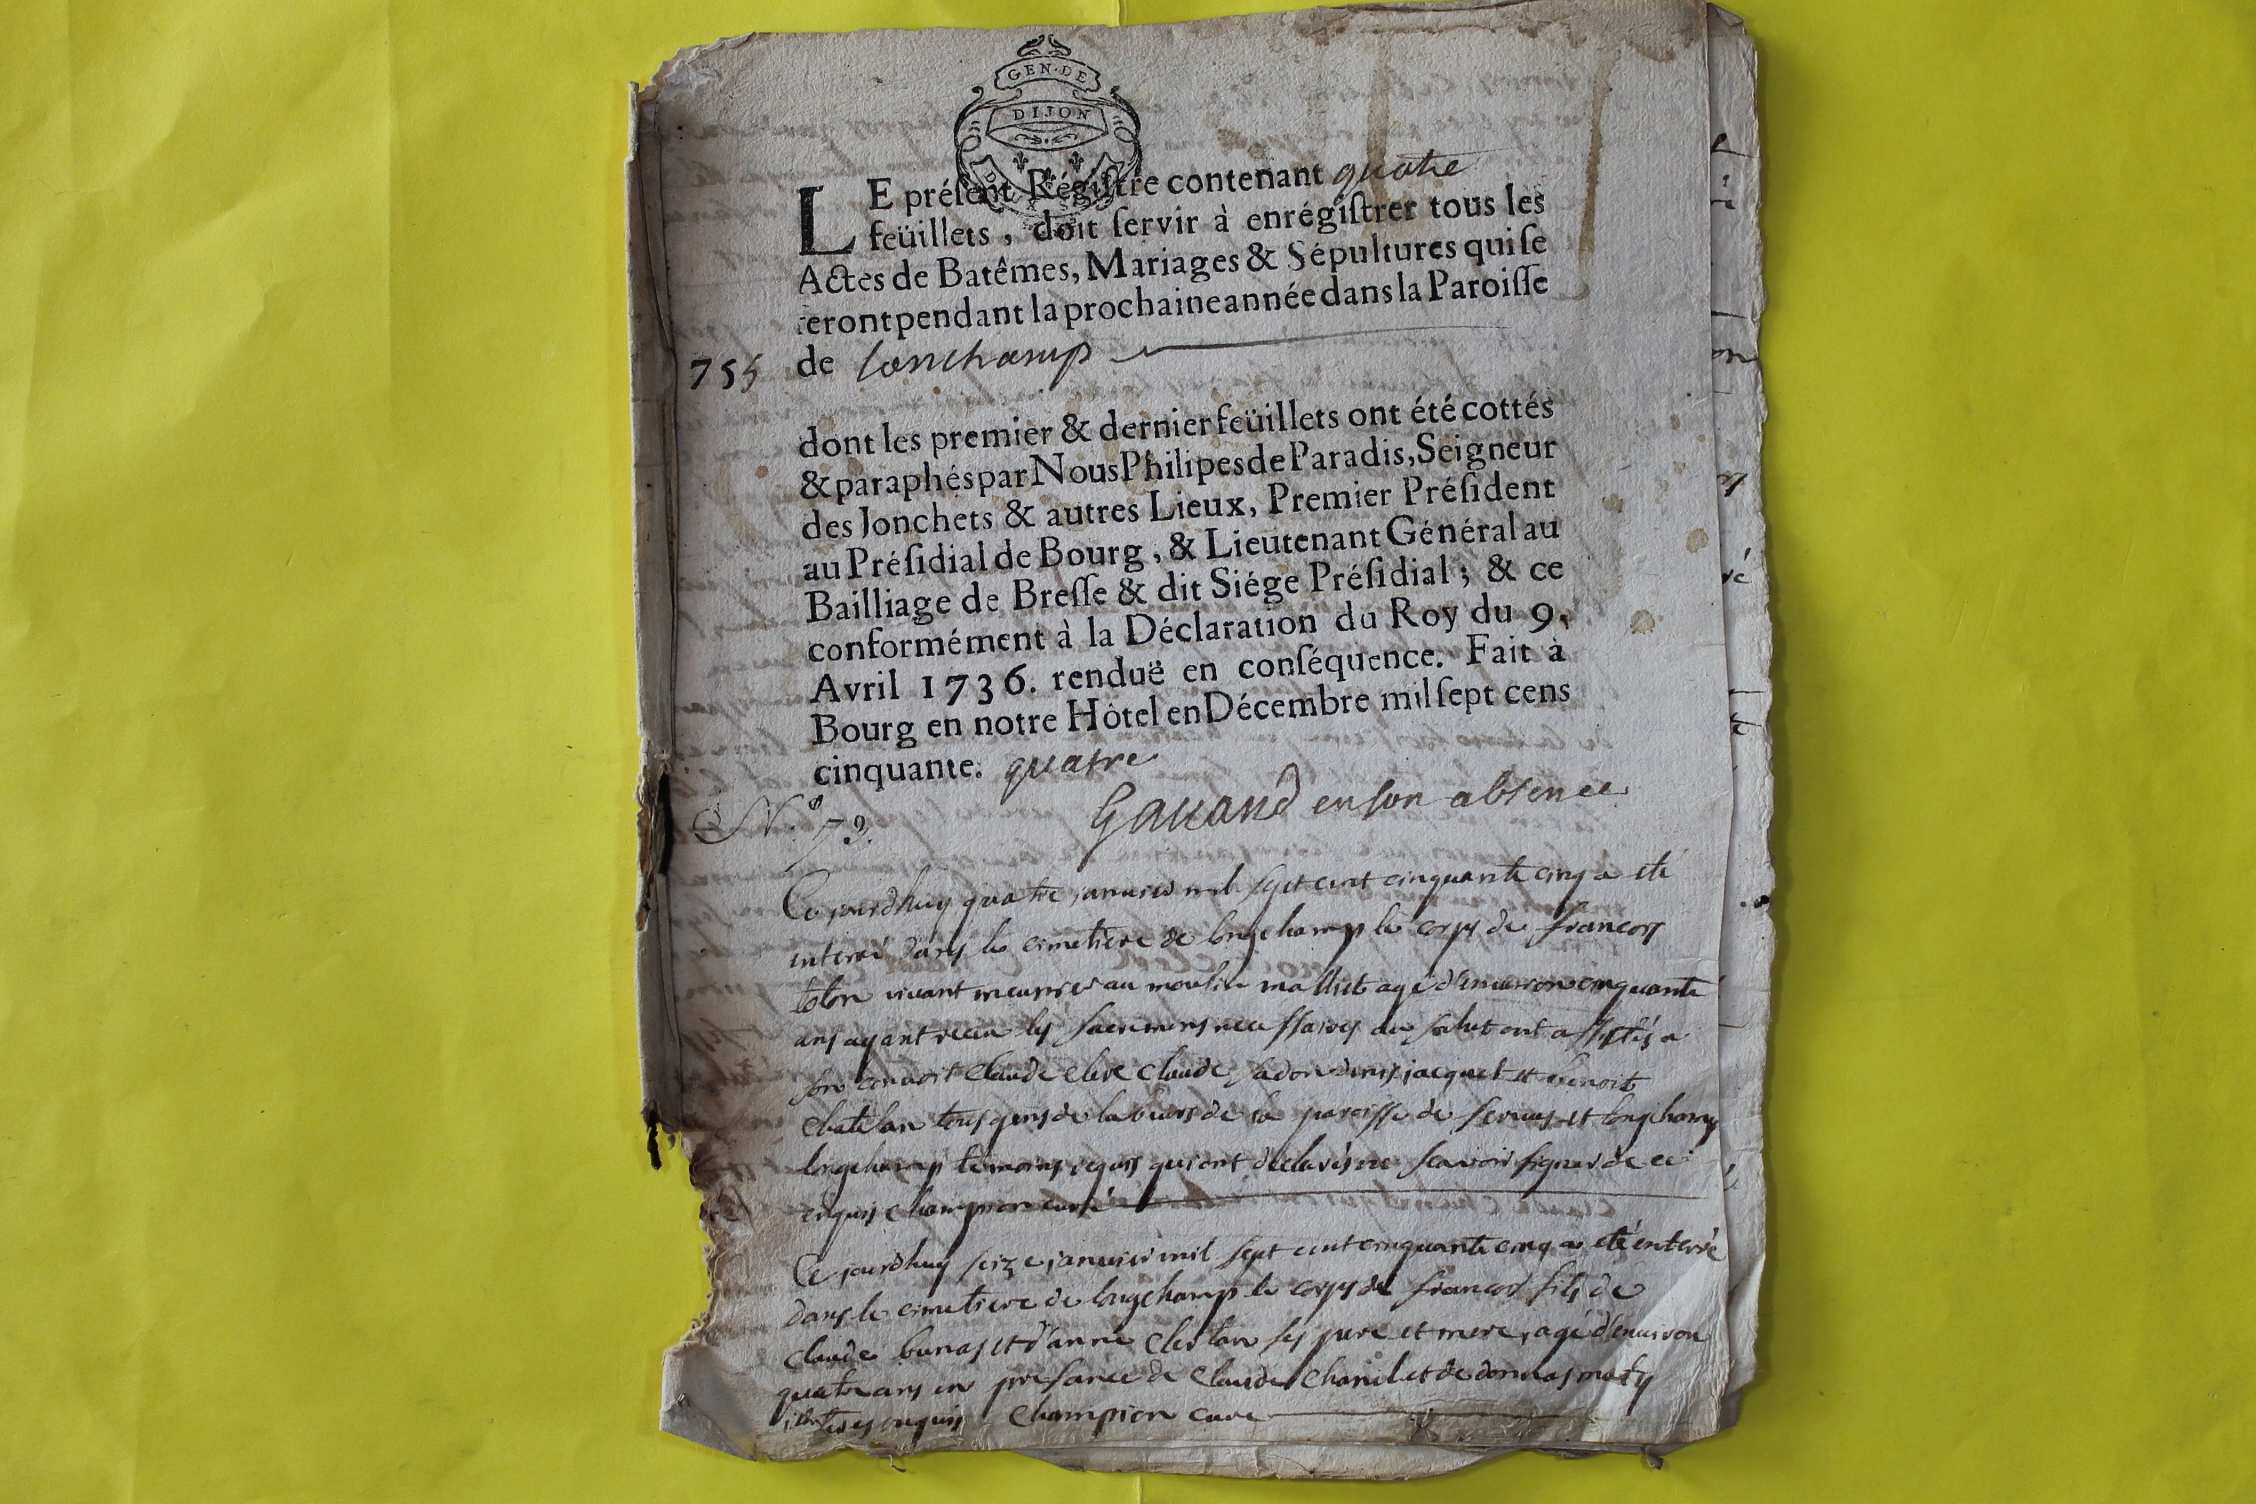 GEN. DE
DIJON
LE préſent Régiſtre contenant quatre
feüillets, doit ſervir à enrégiſtrer tous les
Actes de Batêmes, Mariages & Sépultures qui ſe
feront pendant la prochaine année dans la Paroiſſe
755 de lonchamp
dont les premier & dernier feüillets ont été cottés
& paraphés par Nous Philipes de Paradis, Seigneur
des Jonchets & autres Lieux, Premier Préſident
au Préſidial de Bourg, & Lieutenant Général au
Bailliage de Breſſe & dit Siége Préſidial; & ce
conformément à la Déclaration du Roy du 9.
Avril 1736. renduë en conſéquence. Fait à
Bourg en notre Hôtel en Décembre mil ſept cens
cinquante. quatre
N.º 79. Gauand en son absence
Ce jourdhuy quatre janvier mil sept cent cinquante cinq a eté
interré dans le cimetiere de longchamp le corps de francois
vivant meunier au moulin agé d'environ cinquante
ans ayant receu les sacremens necessaires au salut ont assistés a
son convoit Claude Clere Claude denis jacquet et benoit
chatelan tous gens de labeurs de la paroisse de servas et longchamp
longchamp temoins requis qui ont declarés ne scavoir signer de ce
enquis Champion curé
Ce jourdhuy seize janvier mil sept cent cinquante cinq a eté enterré
dans le cimetiere de longchamp le corps de francois fils de
Claude et d'anne ses pere et mere, agé d'environ
quatre ans en presance de Claude et de
enquis Champion curé